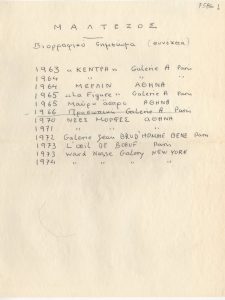 ΜΑΛΤΕΖΟΣ
Βιογραφικό σημείωμα (συνέχεια)
1963 "ΚΕΝΤΡΑ" Galerie A Paris
1964 " " "
1964 ΜΕΡΛΙΝ ΑΘΗΝΑ
1965 "La Figure" Galerie A Paris
1965 Μαύρο άσπρο ΑΘΗΝΑ
1966 Galerie A Paris
1970 ΝΕΕΣ ΜΟΡΦΕΣ ΑΘΗΝΑ
1971 " " "
1972 Galerie Jean BRUD'HOMME BENE Paris
1973 L'ŒIL DE BŒUF Paris
1973 Ward Nasse Galery NEW YORK
1974 " " " "